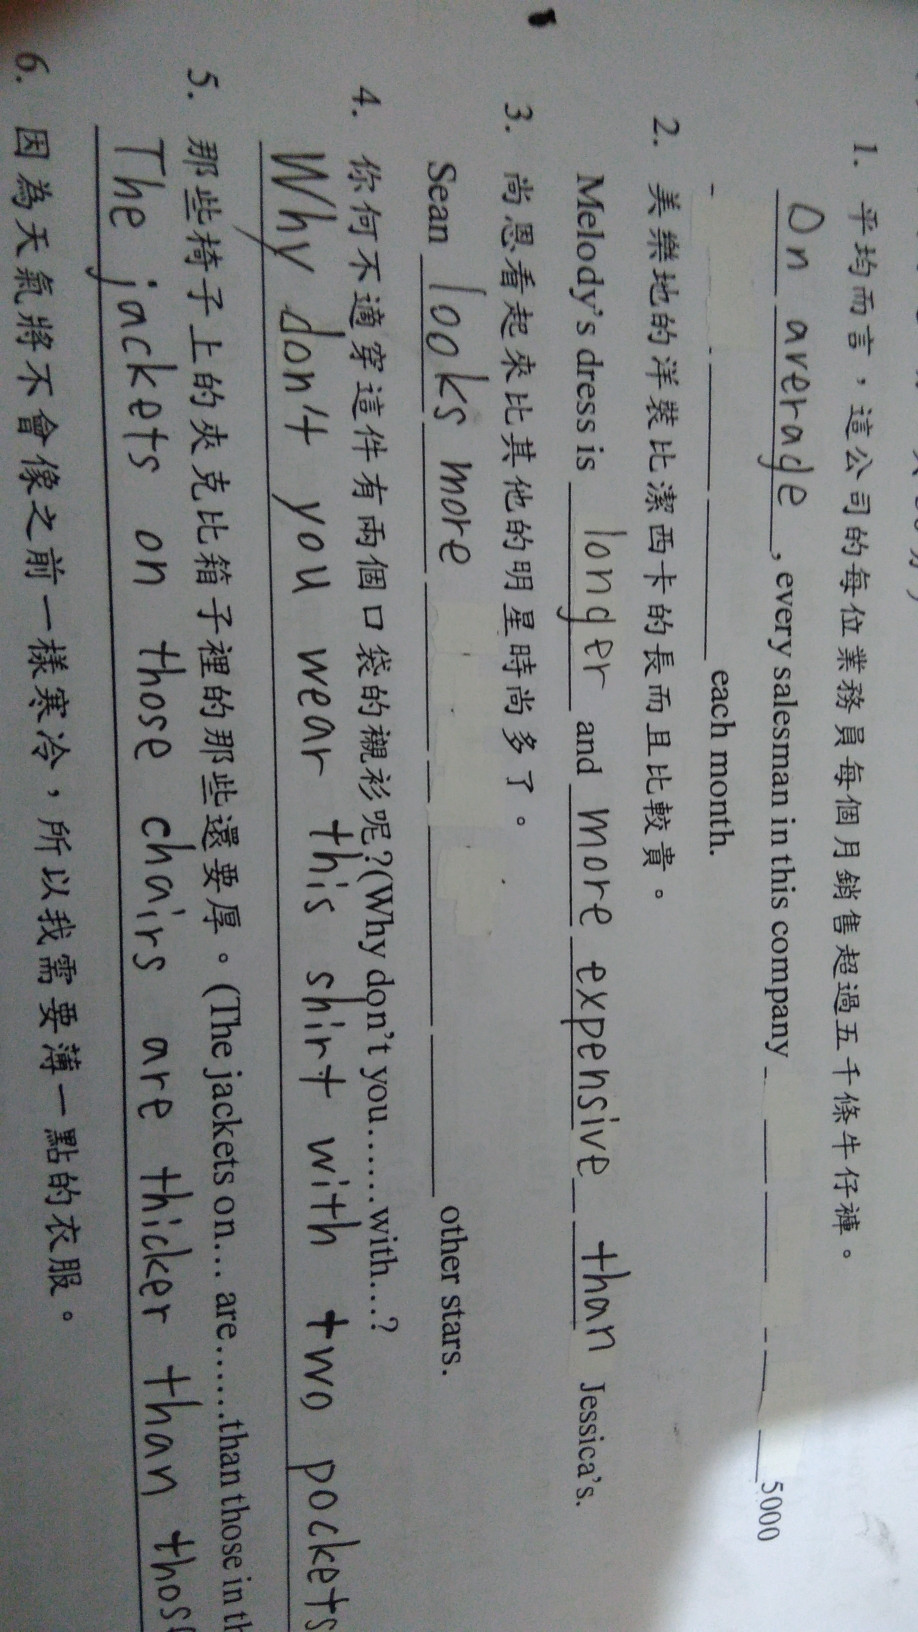 1. 平均而言，這公司的每位業務員每個月銷售超過五千條牛仔褲。
On average, every salesman in this company 5000
each month.
2. 美樂地的洋裝比潔西卡的長而且比較貴。
Melody's dress is longer and more expensive than Jessica's.
3. 尚恩看起來比其他的明星時尚多了。
Sean looks more other stars.
4. 你何不適穿這件有兩個口袋的襯衫呢?(Why don't you……with…?
Why don't you wear this shirt with two pockets
5. 那些椅子上的夾克比箱子裡的那些還要厚。(The jackets on… are……than those in
The jackets on those chairs are thicker than
6. 因為天氣將不會像之前一樣寒冷，所以我需要薄一點的衣服。